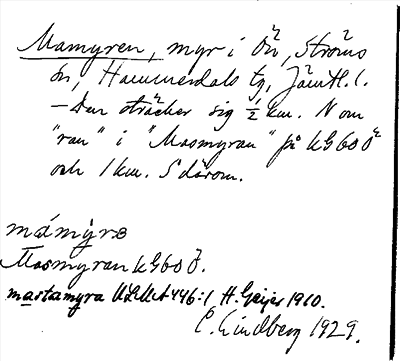 Mamyren, myr i Ön, Ströms
sn, Hammerdals tg, Jämtl. l.
– Den sträcker sig ½ km. N om
"ran" i "Masmyran" på kG60Ö
och 1 km. S därom.
mámýrɞ
Masmyran kG60Ö.
mastamyra ULMA 446:1 H. Geijer 1910.
E. Lindberg 1929.